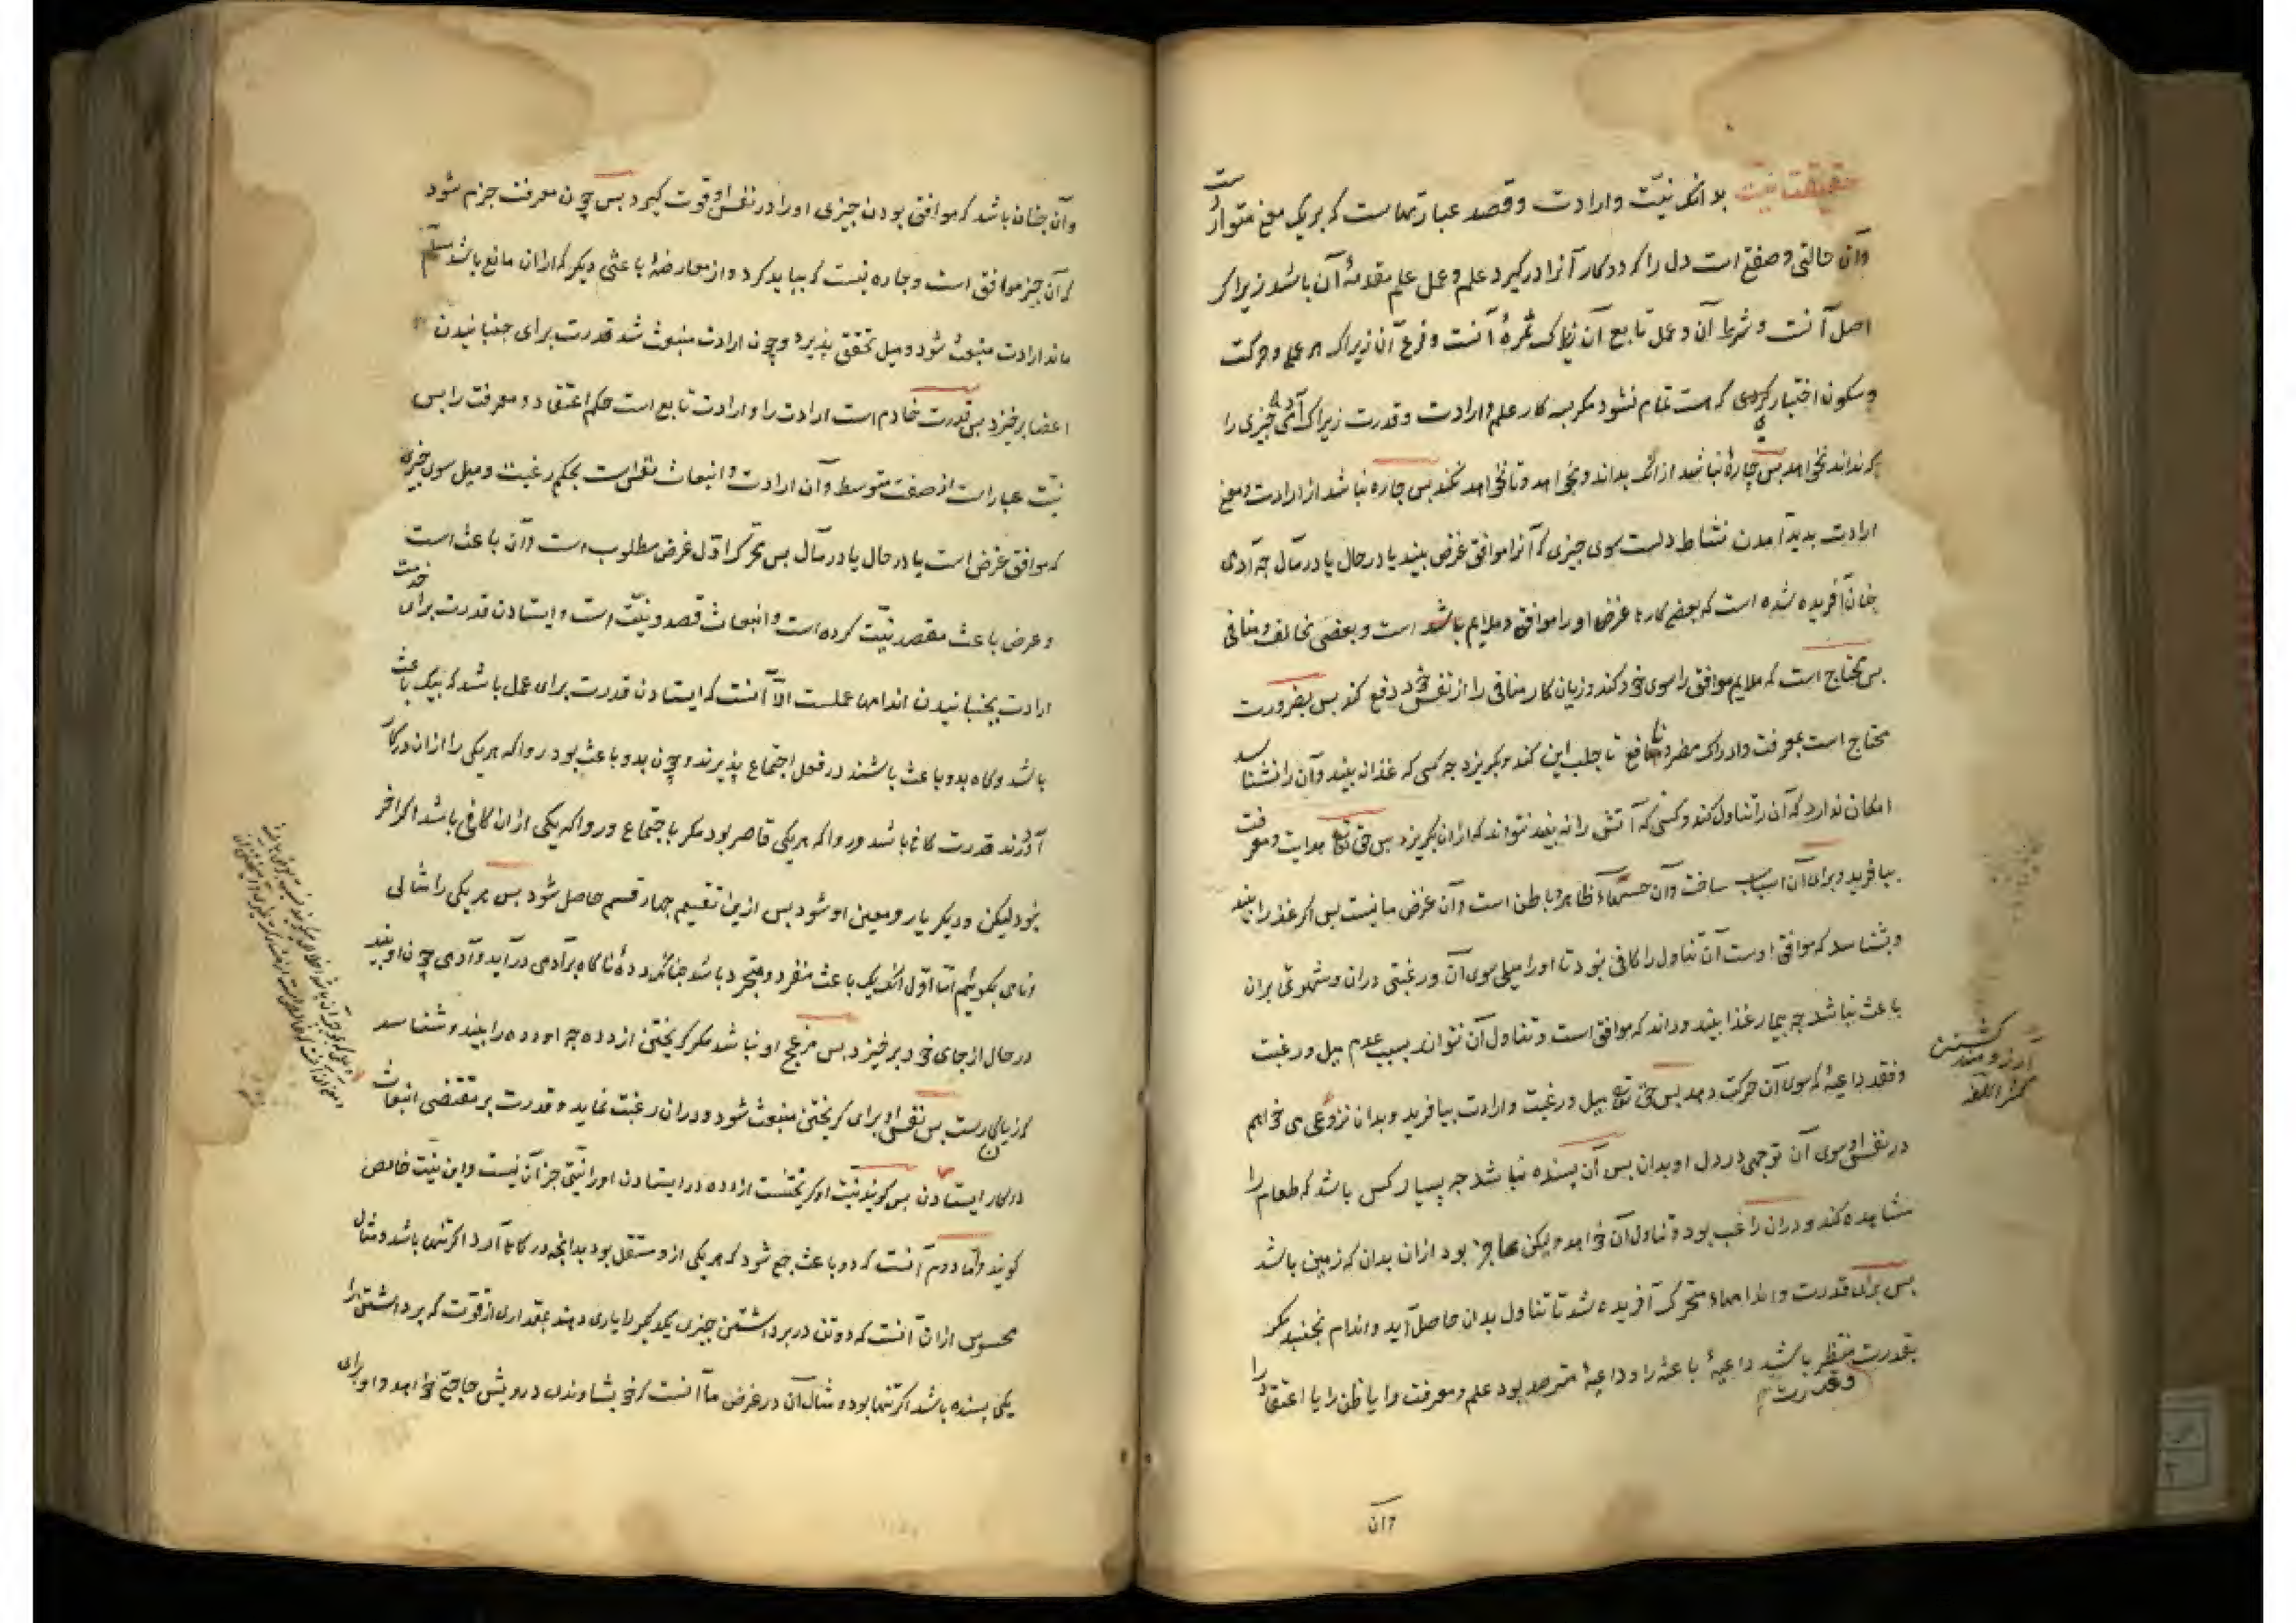 حقیقت نیت بدانکه نیّت وارادت وقصد عبارتهاست که بر یک معنی متوارد است
وآن حالتی وصفتی است دل را که دو کار آنرا درگیرد علم وعمل علم مقدمهٔ آن باشد زیرا که
اصل آنست وشرط آن وعمل تابع آن زیرا که ثمرهٔ آنست وفرع آن زیرا که هر عملی وحرکت
وسکون اختیاری که هست تمام نشود مکر بسه کار علم وارادت وقدرت زیرا که آدمی چیزی را
که نداند نخواهد بس چاره نباشد ازانکه بداند وبخواهد وتا نخواهد نکند بس چاره نباشد از ارادت ومعنی
ارادت بدید آمدن نشاط دلست سوی چیزی که آنرا موافق غرض بیند یا در حال یا در مآل چه آدمی
چنان آفریده شده است که بعضی کارها غرض اورا موافق وملایم است وبعضی مخالف ومنافی
بس محتاج است که ملایم موافق را سوی خود کند وزیان کار منافی را از نفس خود دفع کند بس بضرورت
محتاج است بمعرفت وادراک مضر ونافع تا جلب این کند وبکریزد چه کسی که غذا نه بیند وآن را نشناسد
امکان ندارد که آن را تناول کند وکسی که آتش را نه بیند نتواند که ازان بکریزد بس حق تع هدایت ومعرفت
بیافرید وبرای آن اسباب ساخت وآن حسهاء ظاهر وباطن است وآن غرض ما نیست بس اکر غذا را به بیند
وبشناسد که موافق اوست آن تناول را کافی نبود تا اورا میلی سوی آن ورغبتی دران وشهوتی بران
باعث نباشد چه بیمار غذا بیند وداند که موافق است وتناول آن نتواند بسبب عدم میل ورغبت
وفقد داعیهٔ که سوی آن حرکت دهد بس حق تع میل ورغبت وارادت بیافرید وبدان نزوعی می خواهم
در نفس او سوی آن توجهی در دل او بدان بس آن بسنده نباشد چه بسیار کس باشد که طعام را
مشاهده کند ودران راغب بود وتناول آن خواهد ولیکن عاجز بود ازان بدان که زمین باشد
بس برای قدرت واندامهاء متحرک آفریده شد تا تناول بدان حاصل آید واندام نجنبد مکر
بقدرت وقدرت منتظر باشد داعیهٔ باعثه را وداعیهٔ مترصد بود علم ومعرفت را یا ظن را یا اعتقاد را
وآن
کشتن
آرزومند
کنز اللغه
وآن چنان باشد که موافق بودن چیزی اورا در نفس او قوت کیرد بس چون معرفت جزم شود
که آن چیز موافق است وچاره نیست که بباید کرد واز معارضهٔ باعثی دیکر که ازان مانع باشد سالم
ماند ارادت منبعث شود ومیل تحقق پذیرد وچون ارادت منبعث شد قدرت برای جنبانیدن
اعضا برخیزد بس قدرت خادم است ارادت را وارادت تابع است حکم اعتقاد ومعرفت را بس
نیّت عبارت است از صفت متوسط وآن ارادت وانبعاث نفس است بحکم رغبت ومیل سوی چیزی
که موافق غرض است یا در حال یا در مآل بس محرّک اوّل غرض مطلوب است وآن باعث است
وغرض باعث مقصد نیّت کرده است وانبعاث قصد ونیّت است وایستادن قدرت برای خدمت
ارادت بجنبانیدن اندامها عملست الّا آنست که ایستادن قدرت برای عمل باشد که بیک باعث
باشد وکاه بدو باعث باشند در فعل اجتماع پذیرند وچون بدو باعث بود روا که هر یکی را ازان در کار
آوردند قدرت کافی باشد وروا که هر یکی قاصر بود مکر باجتماع وروا که یکی ازان کافی باشد اکر آخر
نبود لیکن ودیکر یار ومعین او شود بس ازین تقسیم چهار قسم حاصل شود بس هر یکی را مثالی
ونامی بکوئیم امّا اوّل انکه یک باعث منفرد ومتجرد باشد چنانکه دده ناکاه بر آدمی درآید وآدمی چون او بیند
در حال از جای خود برخیزد بس مزعج او نباشد مکر کریختن از دده چه او دده را بیند وشناسد
که زیان کارست بس نفس او برای کریختن منبعث شود ودران رغبت نماید وقدرت بر مقتضی انبعاث
درکار ایستادن بس کویند نیّت او کریختنست از دده در ایستادن اورا نیّتی جز آن نیست واین نیّت خالص
کویند وامّا دوم آنست که دو باعث جمع شود که هر یکی ازو مستقل بود بدانچه در کار آرد اکر تنها باشد ومثال
محسوس ازان آنست که دو تن در برداشتن چیزی یکدیکر را یاری دهند بمقداری از قوّت که برداشتن را
یکی بسنده باشد اکر تنها بود ومثال آن در غرض ما آنست که خویشاوندی درویش حاجتی خواهد واو برای